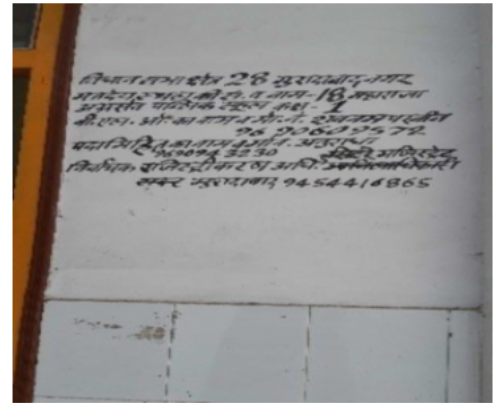 विधान सभा क्षेत्र 28 मुरादाबाद नगर
मतदेय स्थल की सं. व नाम-18 महाराजा
अग्रसेन पब्लिक स्कूल कक्ष-1
बी.एल. ओ. का नाम व मो. नं. शबनम परवीन
9690609572
पदाभिहित का नाम व मो.नं.
निर्वाचक रजिस्ट्रीकरण अधि. सिटी मजिस्ट्रेट
सदर मुरादाबाद 9454416865